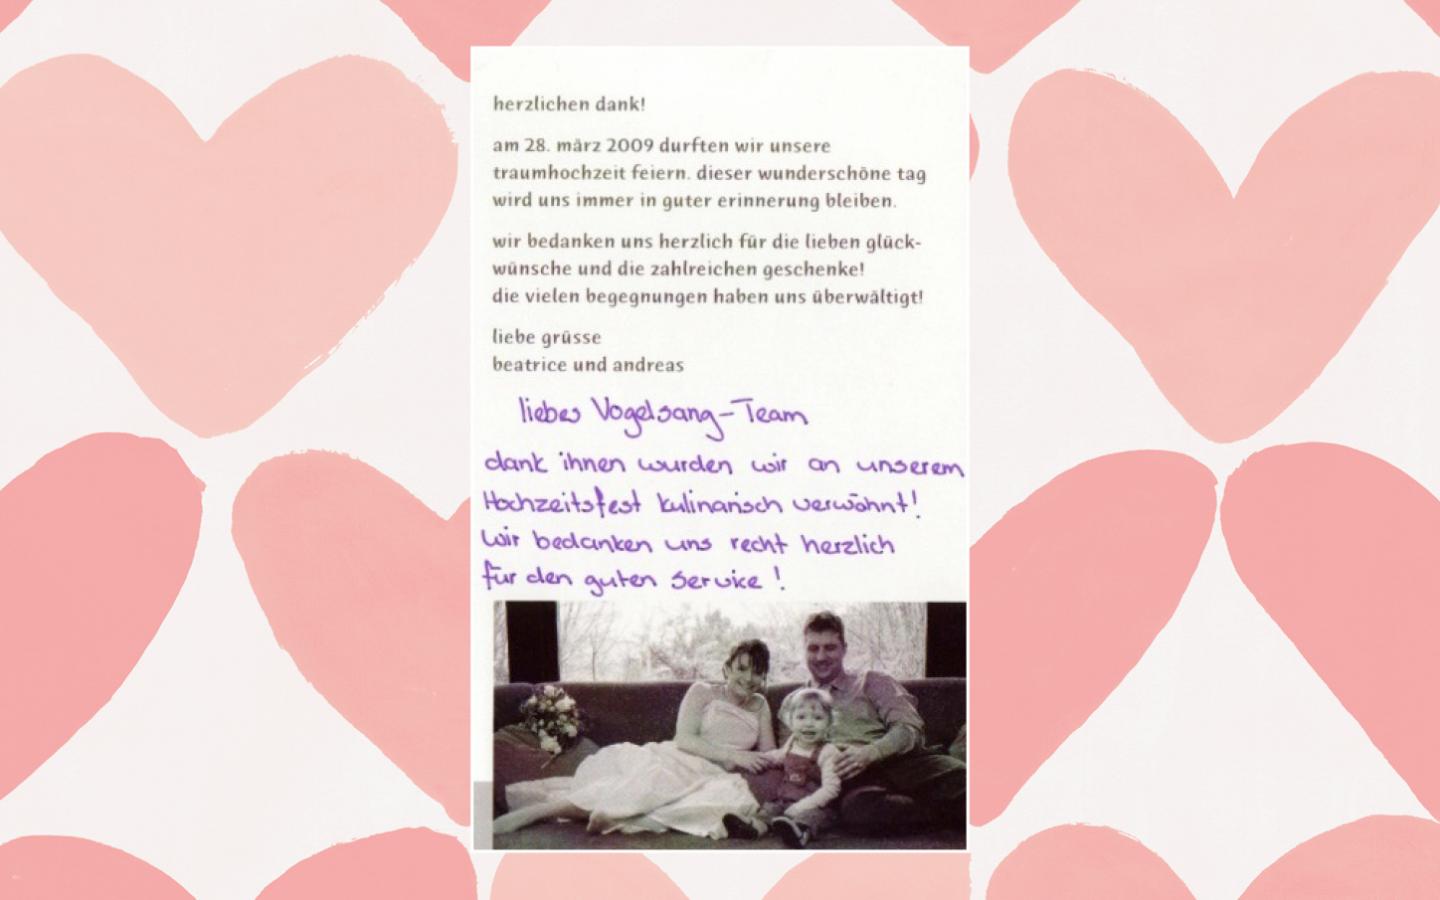 herzlichen dank!
am 28. märz 2009 durften wir unsere
traumhochzeit feiern. dieser wunderschöne tag
wird uns immer in guter erinnerung bleiben.
wir bedanken uns herzlich für die lieben glück-
wünsche und die zahlreichen geschenke!
die vielen begegnungen haben uns überwältigt!
liebe grüsse
beatrice und andreas
liebes Vogelsang-Team
dank ihnen wurden wir an unserem
Hochzeitsfest kulinarisch verwöhnt!
Wir bedanken uns recht herzlich
für den guten Service!